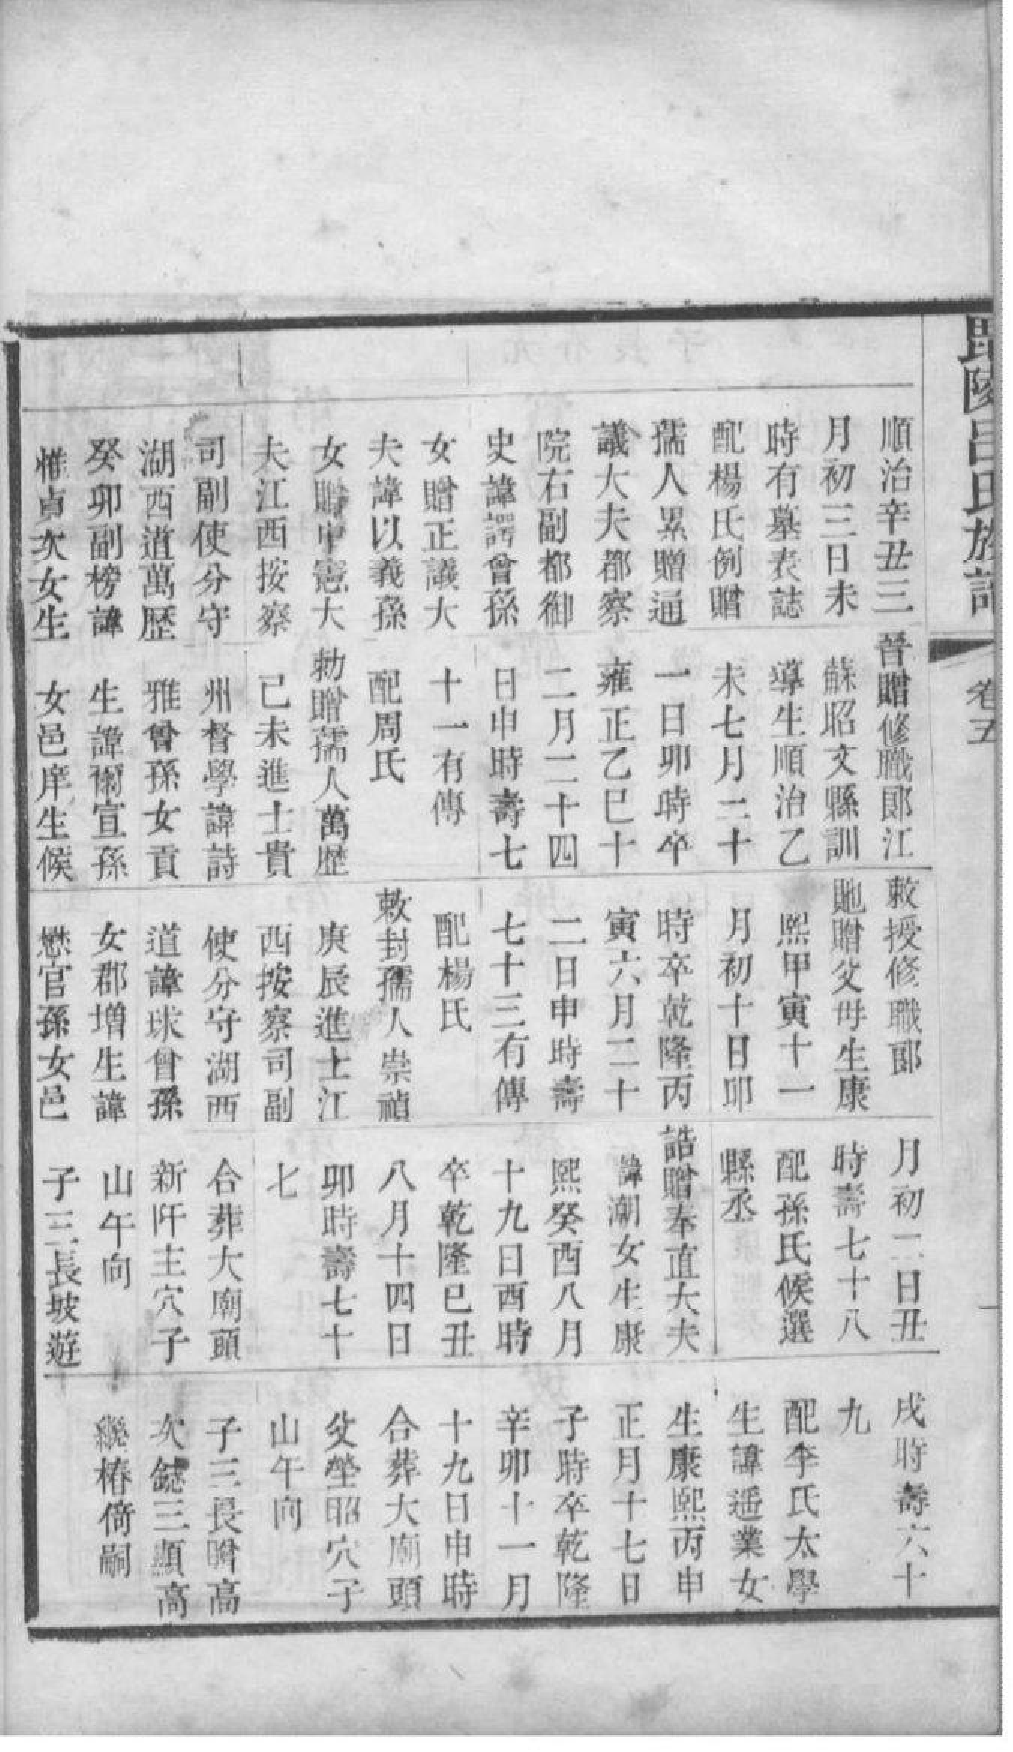 毘陵呂氏族譜
卷五
順治辛丑三
月初三日未
時有墓表誌
配楊氏例贈
孺人累贈通
議大夫都察
院右副都御
史諱諤曾孫
女贈正議大
夫諱以義孫
女贈中憲大
夫江西按察
司副使分守
湖西道萬歷
癸卯副榜諱
惟貞次女生
晉贈修職郎江
蘇昭文縣訓
導生順治乙
未七月二十
一日卯時卒
雍正乙巳十
二月二十四
日申時壽七
十一有傳
配周氏
勅贈孺人萬歷
己未進士貴
州督學諱詩
雅曾孫女貢
生諱爾宣孫
女邑庠生候
敕授修職郎
貤贈父母生康
熙甲寅十一
月初十日卯
時卒乾隆丙
寅六月二十
二日申時壽
七十三有傳
配楊氏
敕封孺人崇禎
庚辰進士江
西按察司副
使分守湖西
道諱球曾孫
女郡增生諱
懋官孫女邑
月初二日丑
時壽七十八
配孫氏候選
縣丞
誥贈奉直大夫
諱潮女生康
熙癸酉八月
十九日酉時
卒乾隆己丑
八月十四日
卯時壽七十
七
合葬大廟頭
新阡主穴子
山午向
子三長坡遊
戌時壽六十
九
配李氏太學
生諱遜業女
生康熙丙申
正月十七日
子時卒乾隆
辛卯十一月
十九日申時
合葬大廟頭
父塋昭穴子
山午向
子三長瞻高
次鐩三顯高
繼椿倚嗣